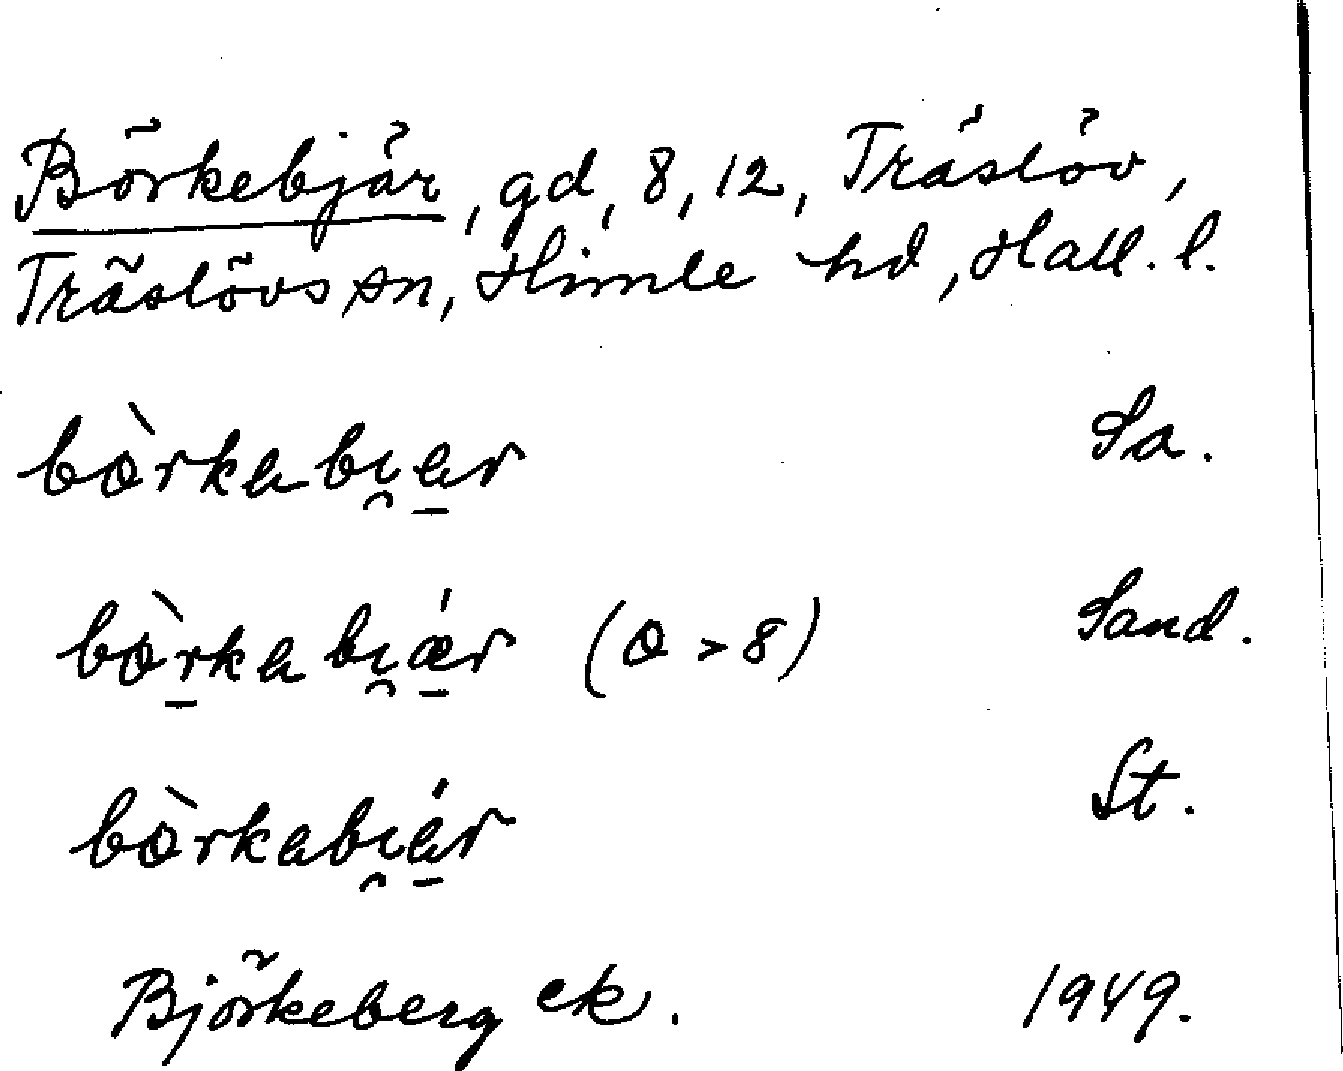 Börkebjär, gd, 8, 12, Träslöv,
Träslövs sn, Himle hd, Hall. l.
bòrkabi̯a̱r Sa.
bòṟkabi̯ǽ̱r (o > 8) Sand.
bòrkabi̯á̱r St.
Björkeberg ek. 1949.